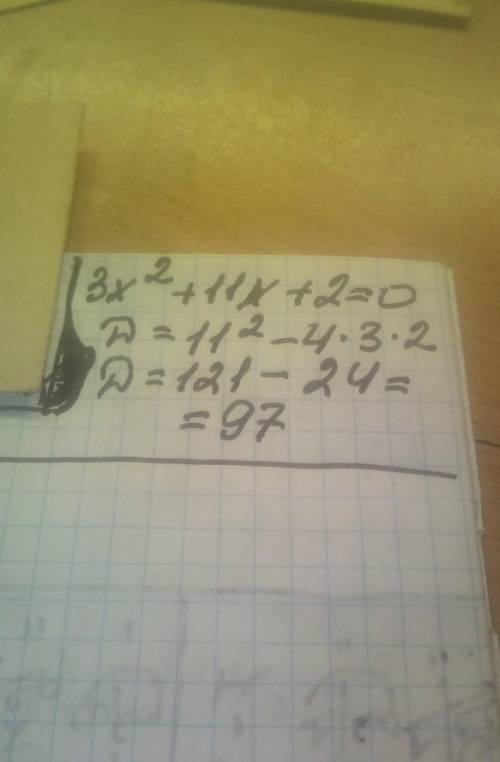 3x² + 11x + 2 = 0
D = 11² - 4 · 3 · 2
D = 121 - 24 =
= 97